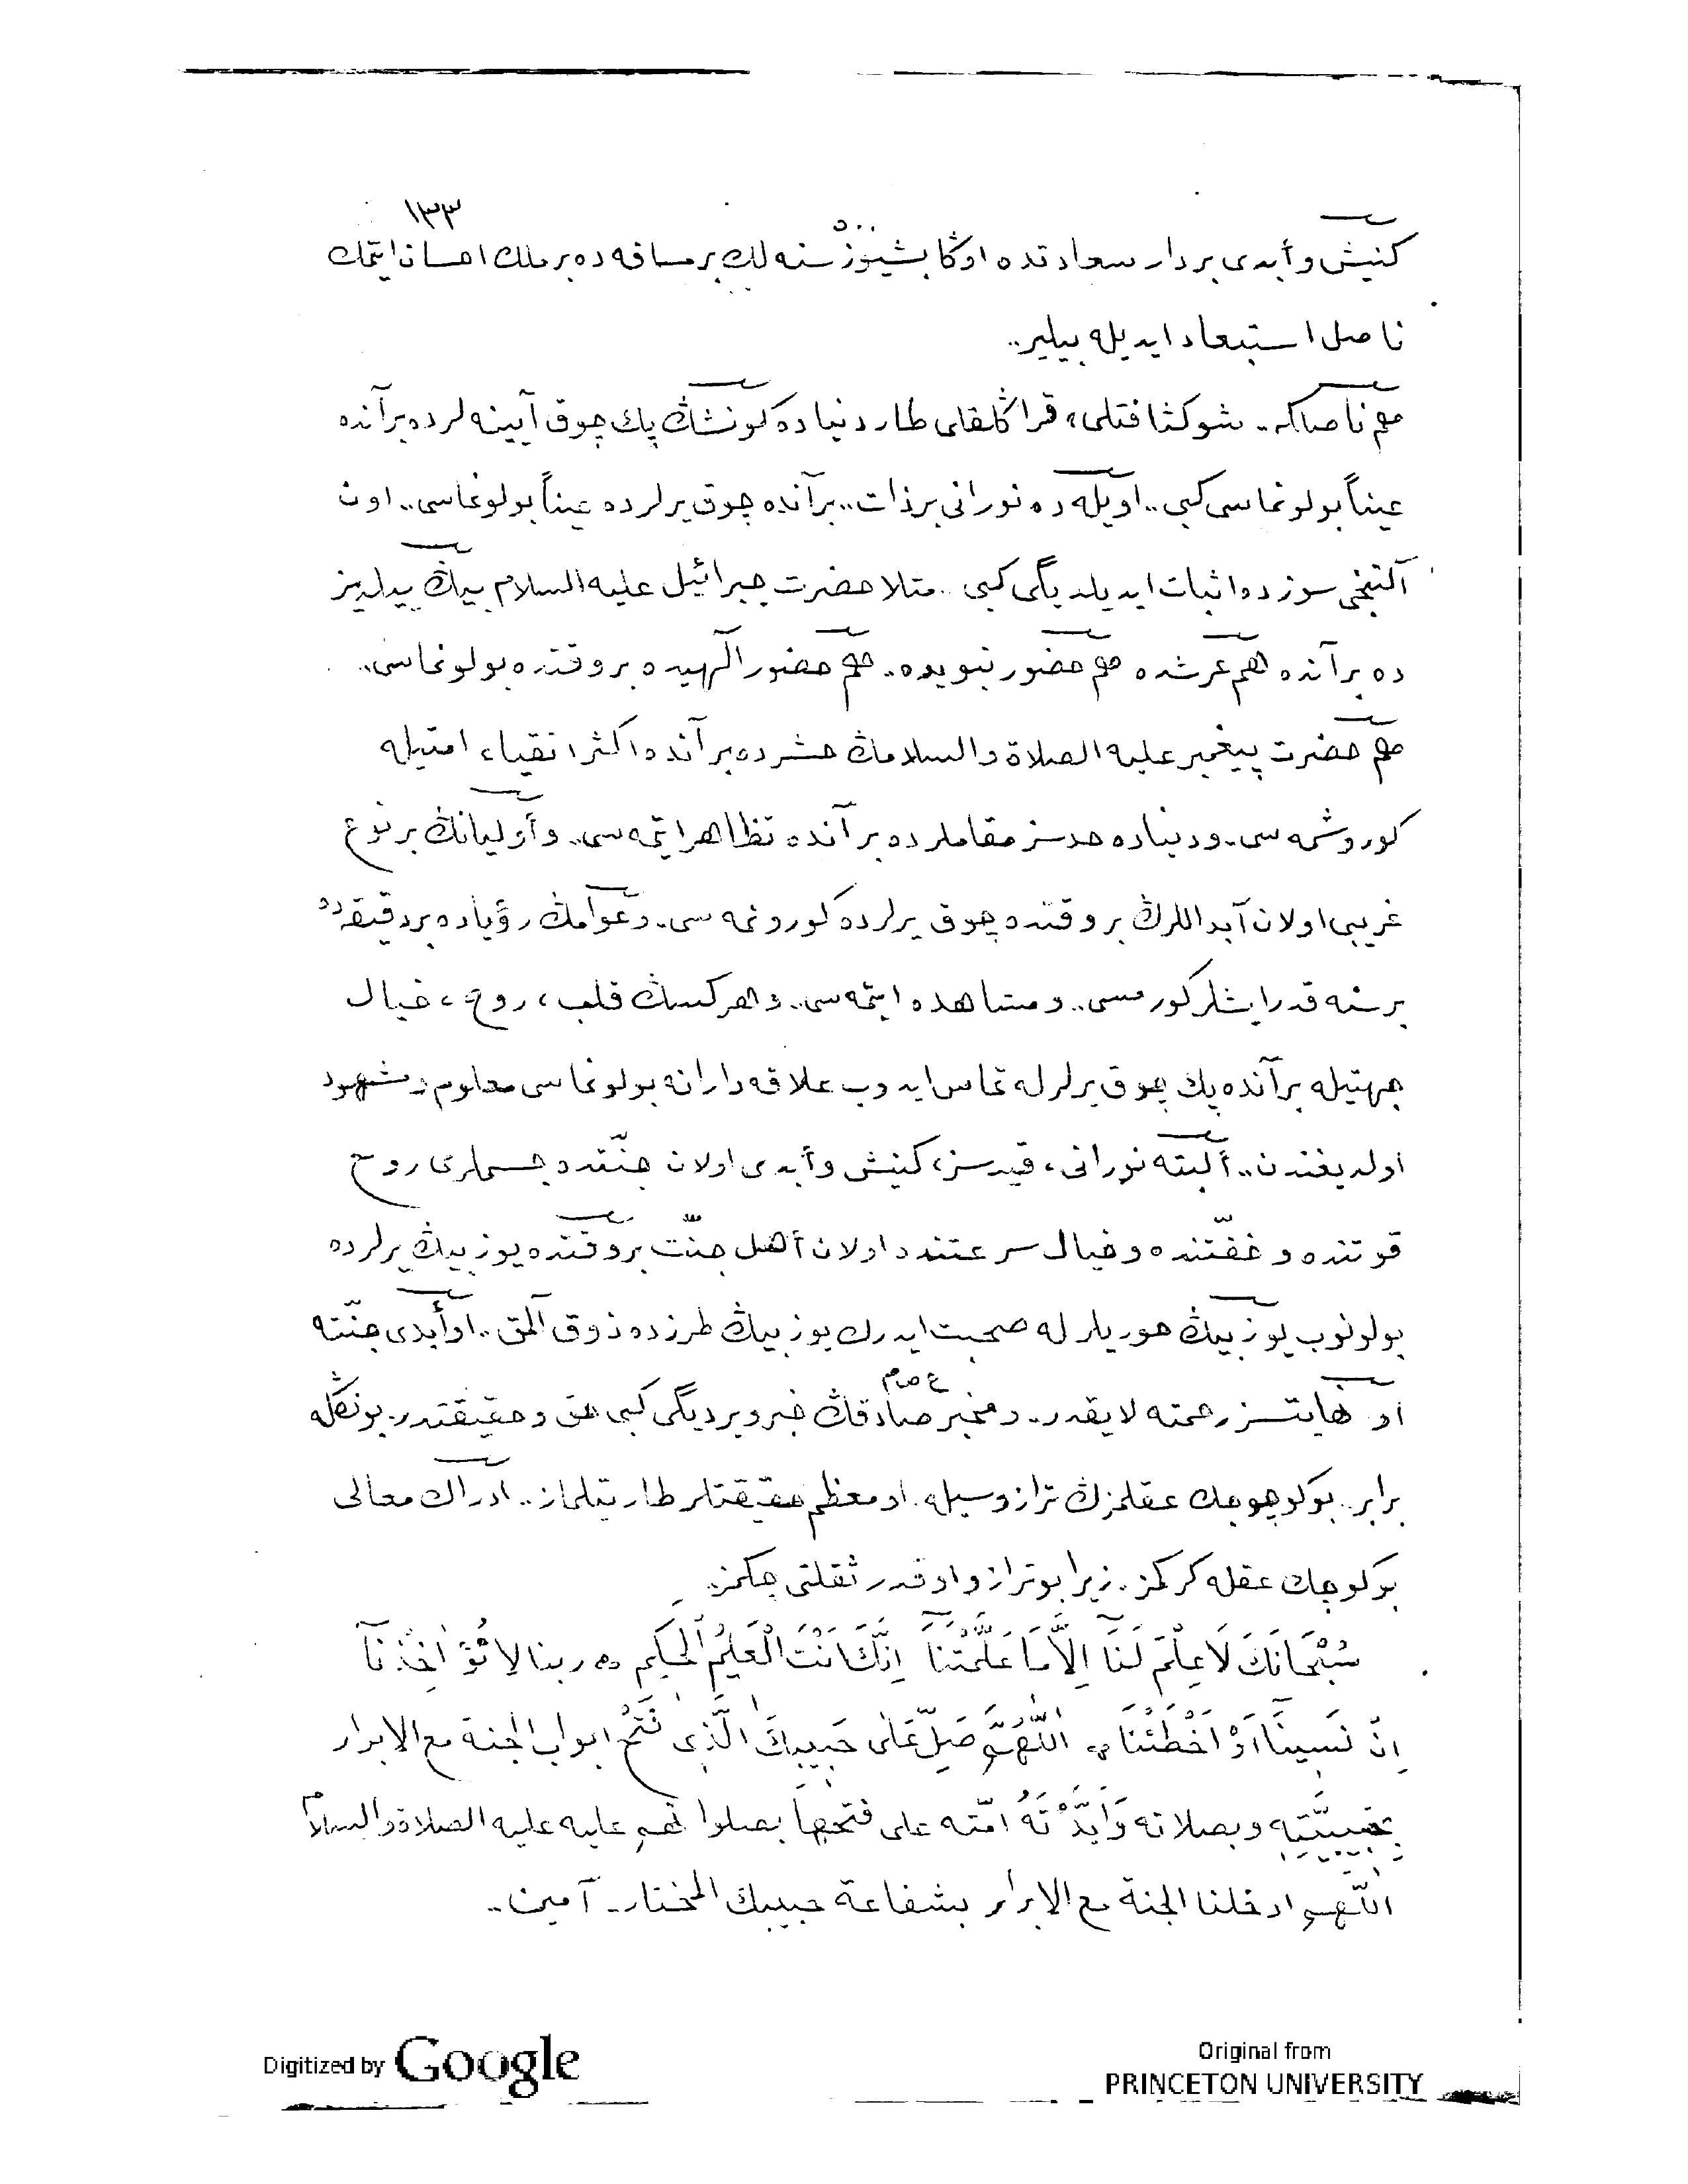 ١٣٣
٥٠٠
كنيش وأبدى بر دار سعادتده اوڭا بشيوز سنه لك بر مسافه ده بر ملك احسان ايتمك
ناصل استبعاد ايديله بيلير..
هم ناصلكه.. شو كثافتلى، قراڭلقلى طار دنياده كونشڭ پك چوق آيينه لرده بر آنده
عيناً بولونماسى كبى.. اويله ده نورانى بر ذات.. بر آنده چوق يرلرده عيناً بولونماسى.. اون
آلتنجى سوزده اثبات ايديلديگى كبى.. مثلا حضرت جبرائيل عليه السلام بيڭ ييلديز
ده بر آنده هم عرشده هم حضور نبويده.. هم حضور الٓهيده بر وقتده بولونماسى..
هم حضرت پيغمبر عليه الصلاة والسلامڭ حشرده بر آنده اكثر اتقياء امتيله
كوروشمه سى.. ودنياده حدسز مقاملرده بر آنده تظاهر ايتمه سى.. وأوليانڭ بر نوع
غريبى اولان آبداللرڭ بر وقتده چوق يرلرده كورونمه سى.. وعوامڭ رؤياده بر دقيقه ده
بر سنه قدر ايشلر كورمسى.. ومشاهده ايتمه سى.. وهركسڭ قلب، روح، خيال
جهتيله بر آنده پك چوق يرلرله تماس ايدوب علاقه دارانه بولونماسى معلوم ومشهود
اولديغندن.. ألبته نورانى، قيدسز، كنيش وأبدى اولان جنّتده جسملرى روح
قوتنده وخفّتنده وخيال سرعتنده اولان أهل جنّت بر وقتده يوز بيڭ يرلرده
بولونوب يوز بيڭ حوريلرله صحبت ايدرك يوز بيڭ طرزده ذوق آلمق.. او أبدى جنّته
ع ص م
او نهايتسز رحمته لايقدر.. ومخبر صادقڭ خبر ويرديگى كبى حق وحقيقتدر. بونڭله
برابر.. بو كوچوجك عقلمزڭ ترازوسيله. او معظم حقيقتلر طارتيلماز.. ادراك معالى
بو كوچك عقله كركمز. زيرا بو ترازو او قدر ثقلتى چكمز.
سُبْحَانَكَ لَا عِلْمَ لَنَٓا اِلَّا مَا عَلَّمْتَنَٓا اِنَّكَ اَنْتَ الْعَلِيمُ الْحَكِيم ربنا لا تُؤَاخِذْنَٓا
اِنْ نَسِينَٓا اَوْ اَخْطَئْنَا اَللّٰهُمَّ صَلِّ عَلٰى حَبِيبِكَ الَّذِى فَتَحَ ابواب الجنة مع الابرار
بِحَبِيبِيَّتِهِ وبصلاته وَاَيَّدَتْهُ امّته على فتحها بصلواتهم عليه عليه الصلاة والسلام
اللّهم ادخلنا الجنة مع الابرار بشفاعة حبيبك المختار.. آمين..
Digitized by Google
Original from
PRINCETON UNIVERSITY